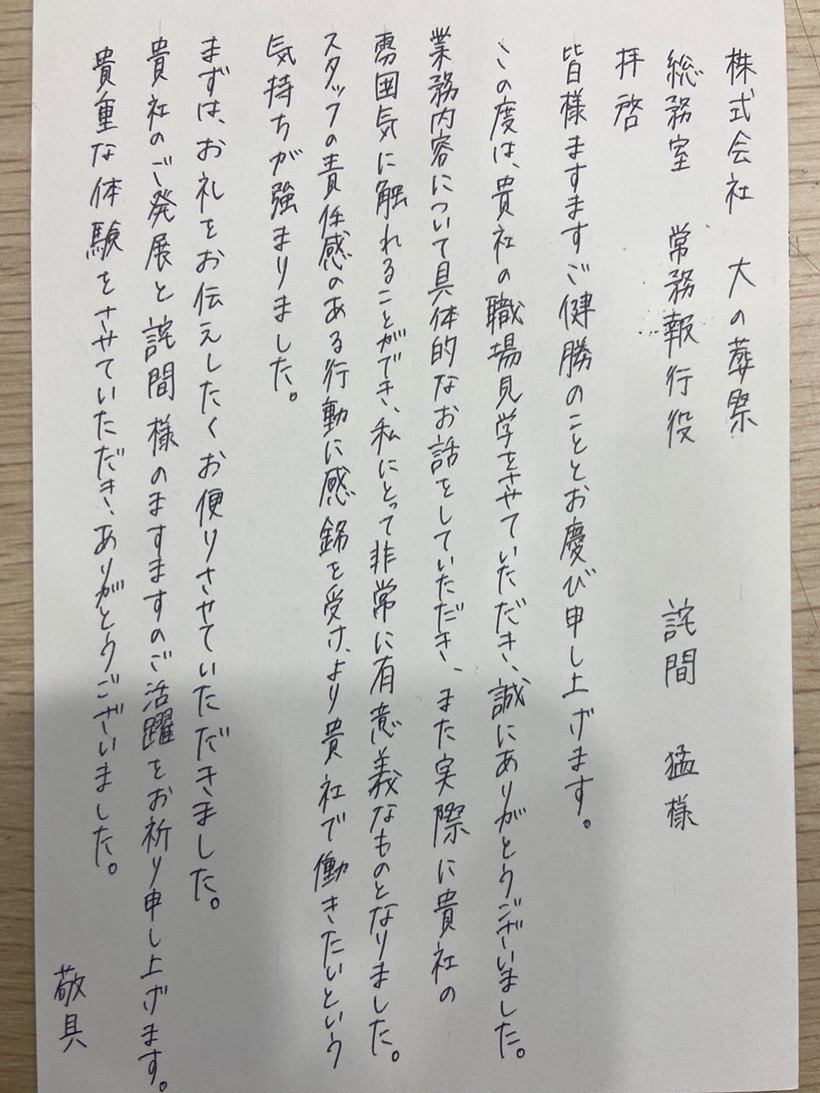 株式会社 大の葬祭
総務室 常務報行役 詫間 猛様
拝啓
皆様ますますご健勝のこととお慶び申し上げます。
この度は、貴社の職場見学をさせていただき、誠にありがとうございました。
業務内容について具体的なお話をしていただき、また実際に貴社の
雰囲気に触れることができ、私にとって非常に有意義なものとなりました。
スタッフの責任感のある行動に感銘を受け、より貴社で働きたいという
気持ちが強まりました。
まずは、お礼をお伝えしたくお便りさせていただきました。
貴社のご発展と詫間様のますますのご活躍をお祈り申し上げます。
貴重な体験をさせていただき、ありがとうございました。
敬具